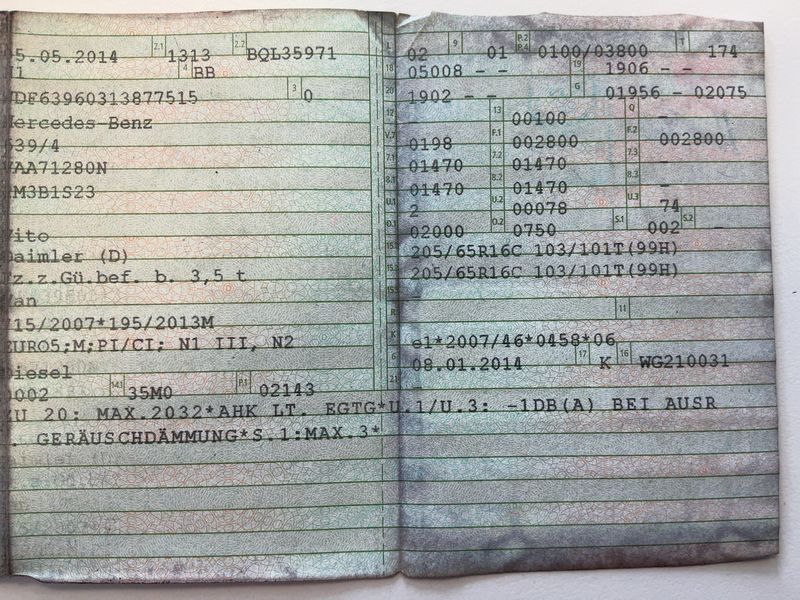 5.05.2014 2.1 1313 2.2 BQL35971
1 4 BB
WDF63960313877515 3 0
Mercedes-Benz
639/4
AA71280N
M3B1S23
Vito
Daimler (D)
Fz.z.Gü.bef. b. 3,5 t
Van
715/2007*195/2013M
EURO5;M;PI/CI; N1 III, N2
Diesel
0002 14.1 35M0 P.1 02143
ZU 20: MAX.2032*AHK LT. EGTG*U.1/U.3: -1DB(A) BEI AUSR
. GERÄUSCHDÄMMUNG*S.1:MAX.3*
L 02 9 01 P.2 P.4 0100/03800 T 174
18 05008 - - 19 1906 - -
20 1902 - - G 01956 - 02075
12 - 13 00100 Q -
V.7 0198 F.1 002800 F.2 002800
7.1 01470 7.2 01470 7.3 -
8.1 01470 8.2 01470 8.3 -
U.1 2 U.2 00078 U.3 74
O.1 02000 O.2 0750 S.1 002 S.2 -
15.1 205/65R16C 103/101T(99H)
15.2 205/65R16C 103/101T(99H)
15.3
R 11
K e1*2007/46*0458*06
6 08.01.2014 17 K 16 WG210031
21